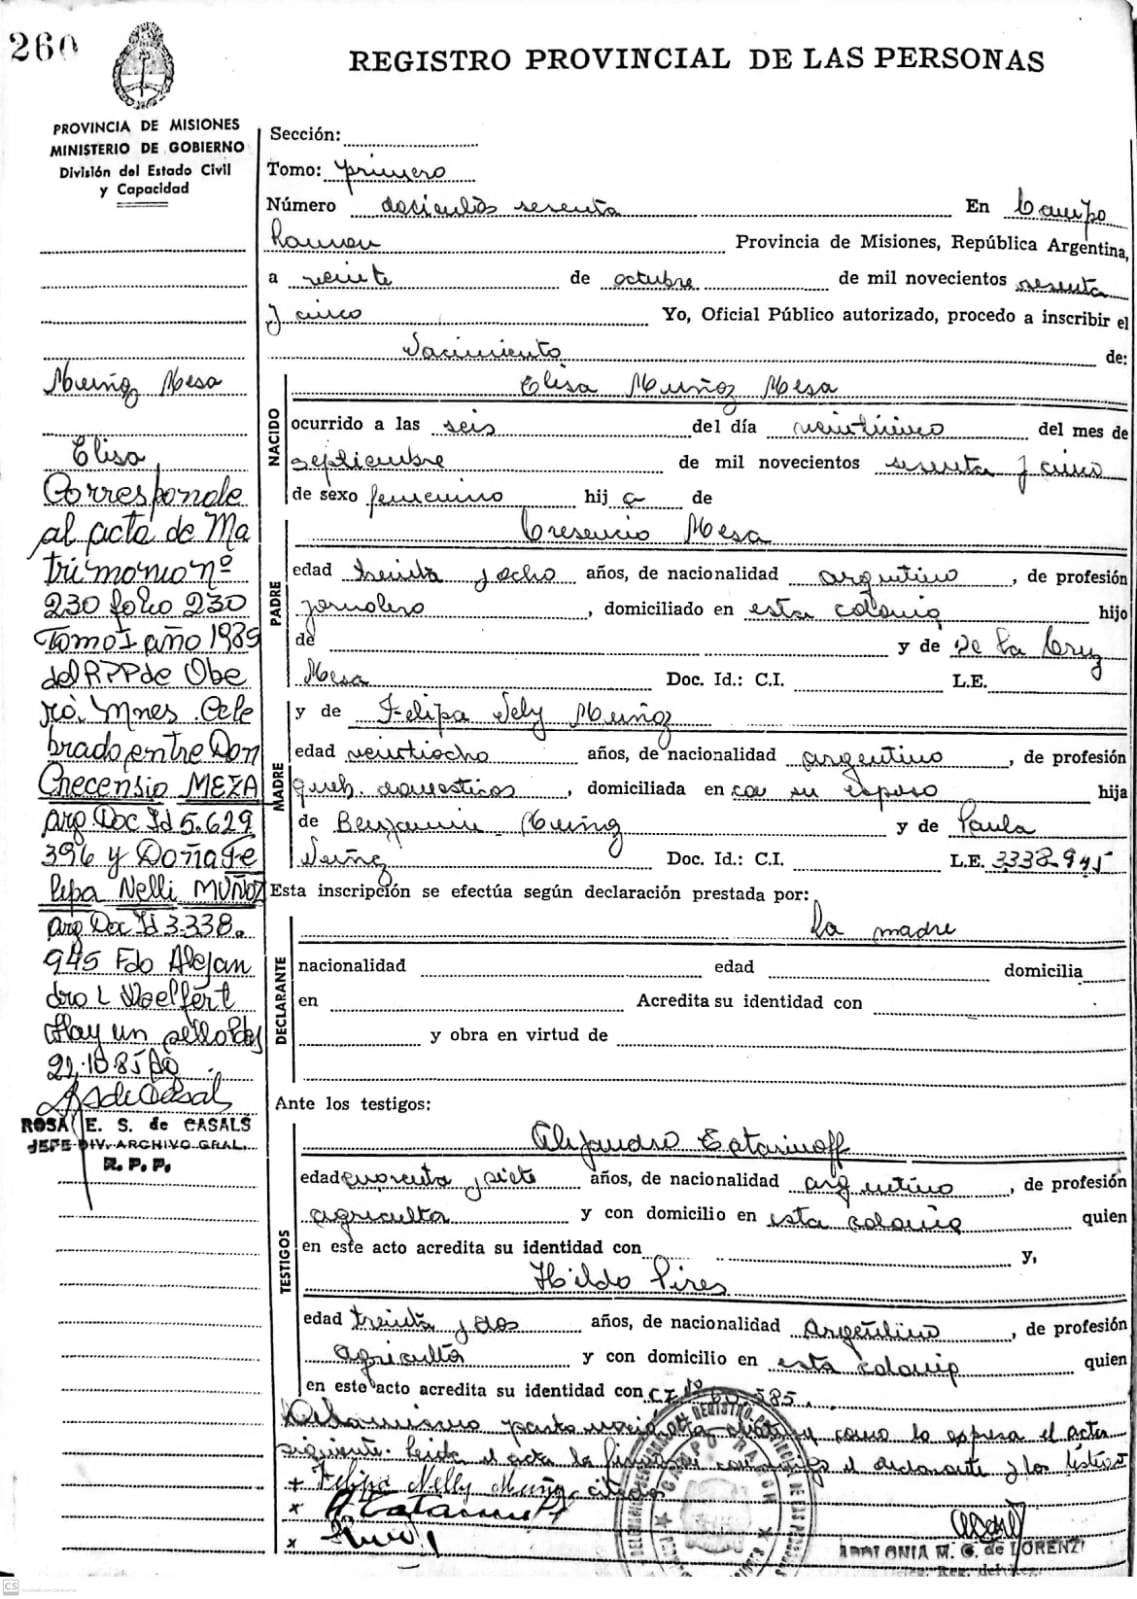 260
REGISTRO PROVINCIAL DE LAS PERSONAS
PROVINCIA DE MISIONES
MINISTERIO DE GOBIERNO
División del Estado Civil
y Capacidad
Sección:
Tomo: primero
Número doscientos sesenta En Campo
Ramon Provincia de Misiones, República Argentina,
a veinte de octubre de mil novecientos sesenta
y cinco Yo, Oficial Público autorizado, procedo a inscribir el
Nacimiento de:
NACIDO
Elisa Muñoz Mesa
ocurrido a las seis del día veinticinco del mes de
septiembre de mil novecientos sesenta y cinco
de sexo femenino hij a de
PADRE
Cresencio Mesa
edad treinta y ocho años, de nacionalidad argentino, de profesión
jornalero, domiciliado en esta colonia hijo
de y de De la Cruz
Mesa Doc. Id.: C.I. L.E.
MADRE
y de Felipa Nely Muñoz
edad veintiocho años, de nacionalidad argentino, de profesión
queh. domesticos, domiciliada en con su esposo hija
de Benjamin Muñoz y de Paula
Doc. Id.: C.I. L.E. 3338.945
Esta inscripción se efectúa según declaración prestada por:
la madre
DECLARANTE
nacionalidad edad domicilia
en Acredita su identidad con
y obra en virtud de
Ante los testigos:
TESTIGOS
Alejandro
edad cuarenta y siete años, de nacionalidad argentino, de profesión
agricultor y con domicilio en esta colonia quien
en este acto acredita su identidad con y,
Hildo Pires
edad treinta y dos años, de nacionalidad Argentino, de profesión
agricultor y con domicilio en esta colonia quien
en este acto acredita su identidad con C.I. Nº 585.
y como lo expresa el acta
siguiente. Leida el acta la firman conmigo el declarante y los testigos
+ Felipa Nelly Muñoz
x
x
APOLONIA M. G. de LORENZI
Muñoz Mesa
Elisa
Corresponde
al acta de Ma
trimonio nº
230 folio 230
Tomo I año 1985
del R.P.P de Obe
rá. Mnes. Cele
brado entre Don
Crecensio MEZA
arg Doc Id 5.629
396 y Doña Fe
lipa Nelli MUÑOZ
arg Doc Id 3.338.
945 Fdo Alejan
dro L Woelfert
Hay un sello Pdas
ROSA E. S. de CASALS
JEFE DIV. ARCHIVO GRAL.
R. P. P.
CS